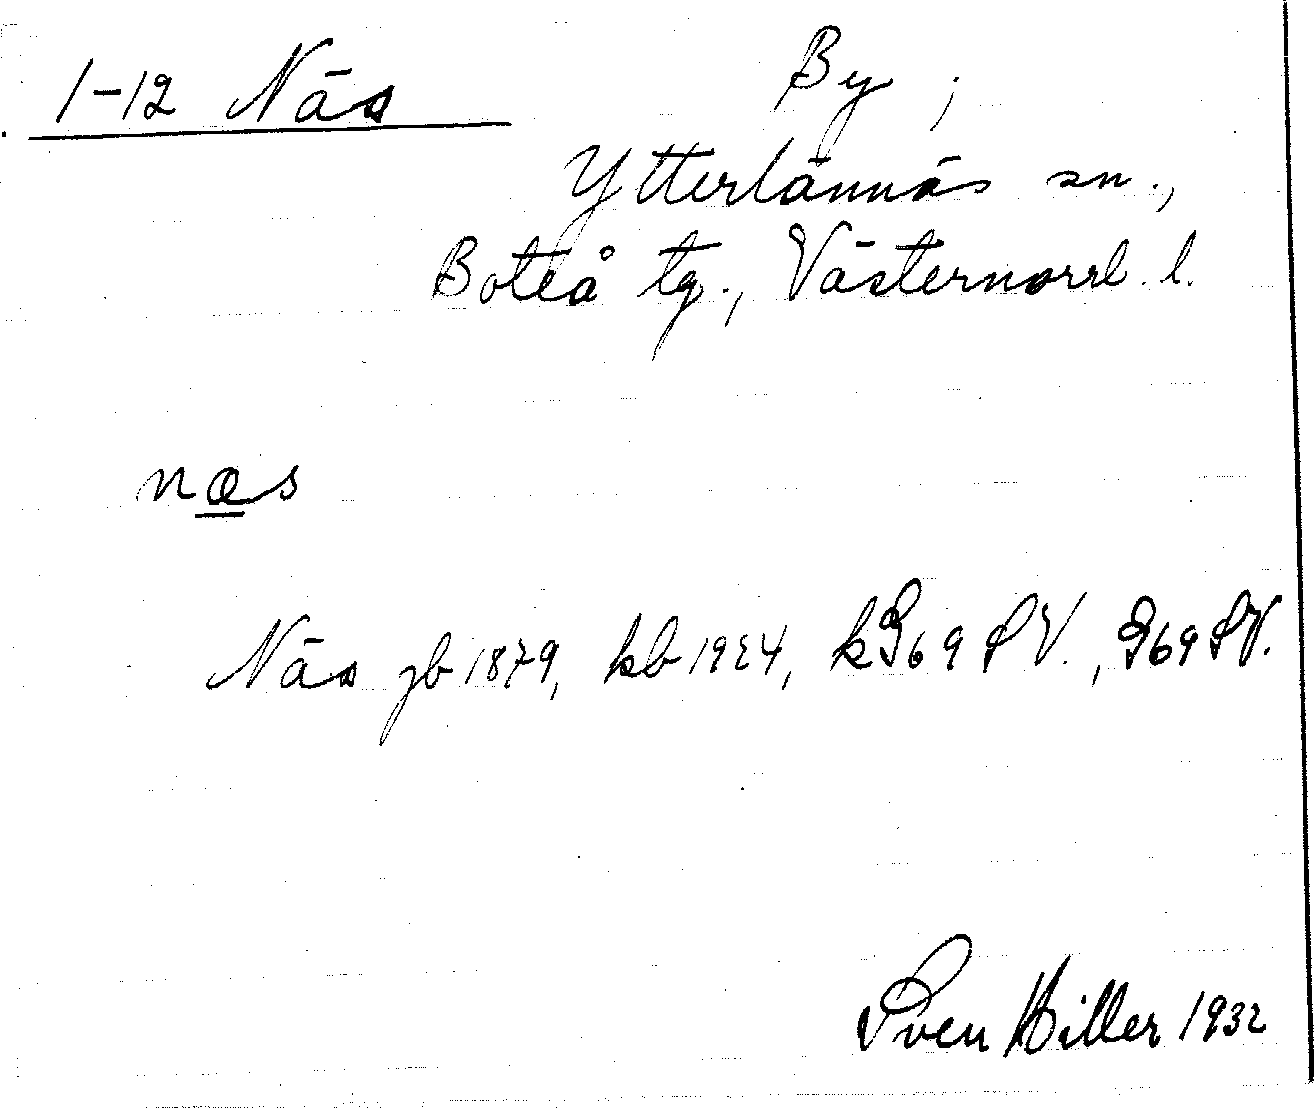 1-12 Näs
By ;
Ytterlännäs sn.,
Boteå tg., Västernorrl. l.
næs
Näs jb 1879, kb 1924, kG69SV., G69SV.
Sven Hiller 1932